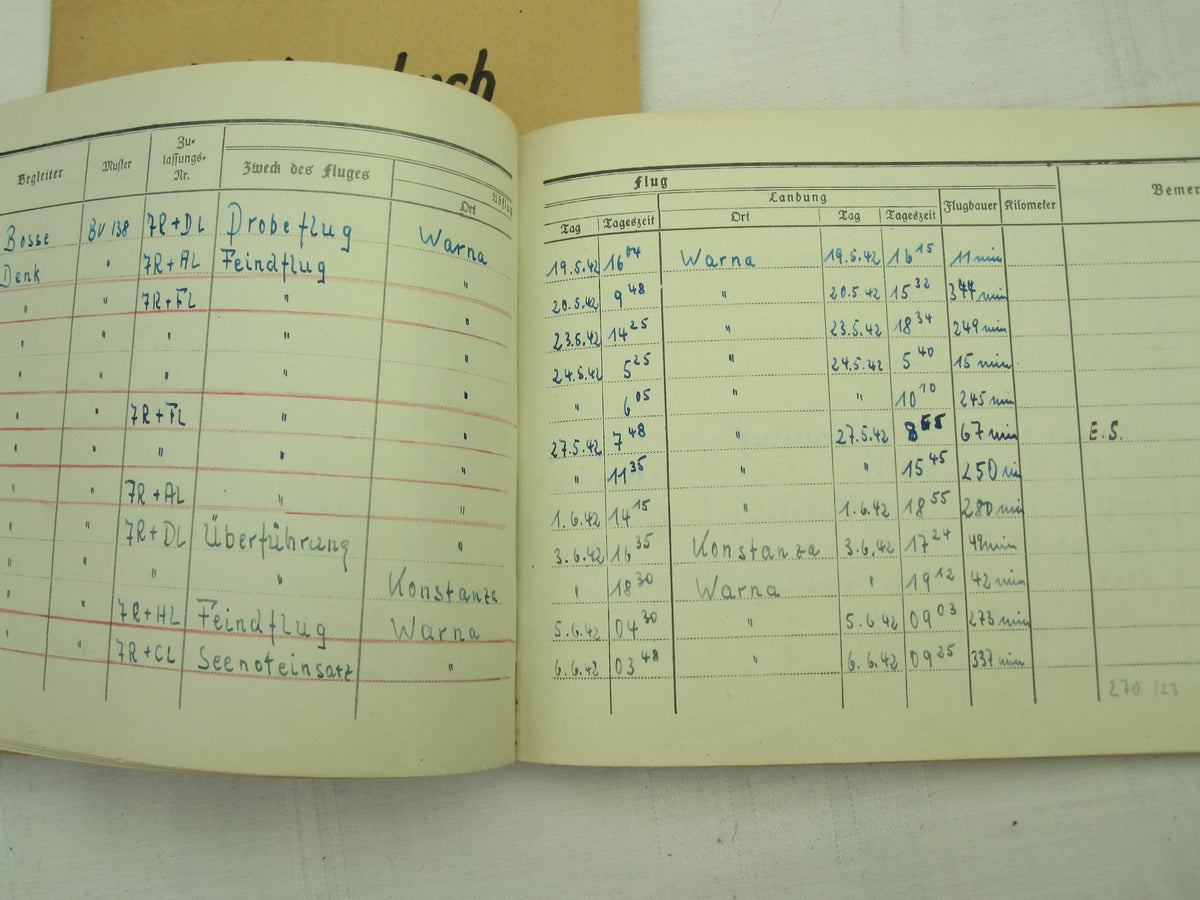 buch
Begleiter Muster Zu- lassungs- Nr. Zweck des Fluges Abflug Ort
Flug
Landung
Tag Tageszeit Ort Tag Tageszeit Flugdauer Kilometer Bemer
Bosse BV 138 7R+DL Probeflug Warna 19.5.42 16 04 Warna 19.5.42 16 15 11 min
Denk " 7R+AL Feindflug " 20.5.42 9 48 " 20.5.42 15 32 344 min
" " 7R+FL " " 23.5.42 14 25 " 23.5.42 18 34 249 min
" " " " " 24.5.42 5 25 " 24.5.42 5 40 15 min
" " " " " 6 05 " " 10 10 245 min
" " 7R+FL " " 27.5.42 7 48 " 27.5.42 8 55 67 min E.S.
" " " " " 11 35 " " 15 45 250 min
" " 7R+AL " " 1.6.42 14 15 " 1.6.42 18 55 280 min
" " 7R+DL Überführung " 3.6.42 16 35 Konstanza 3.6.42 17 24 49 min
" " " " Konstanza " 18 30 Warna " 19 12 42 min
" " 7R+HL Feindflug Warna 5.6.42 04 30 " 5.6.42 09 03 273 min
" " 7R+CL Seenoteinsatz " 6.6.42 03 48 " 6.6.42 09 25 337 min
270 123